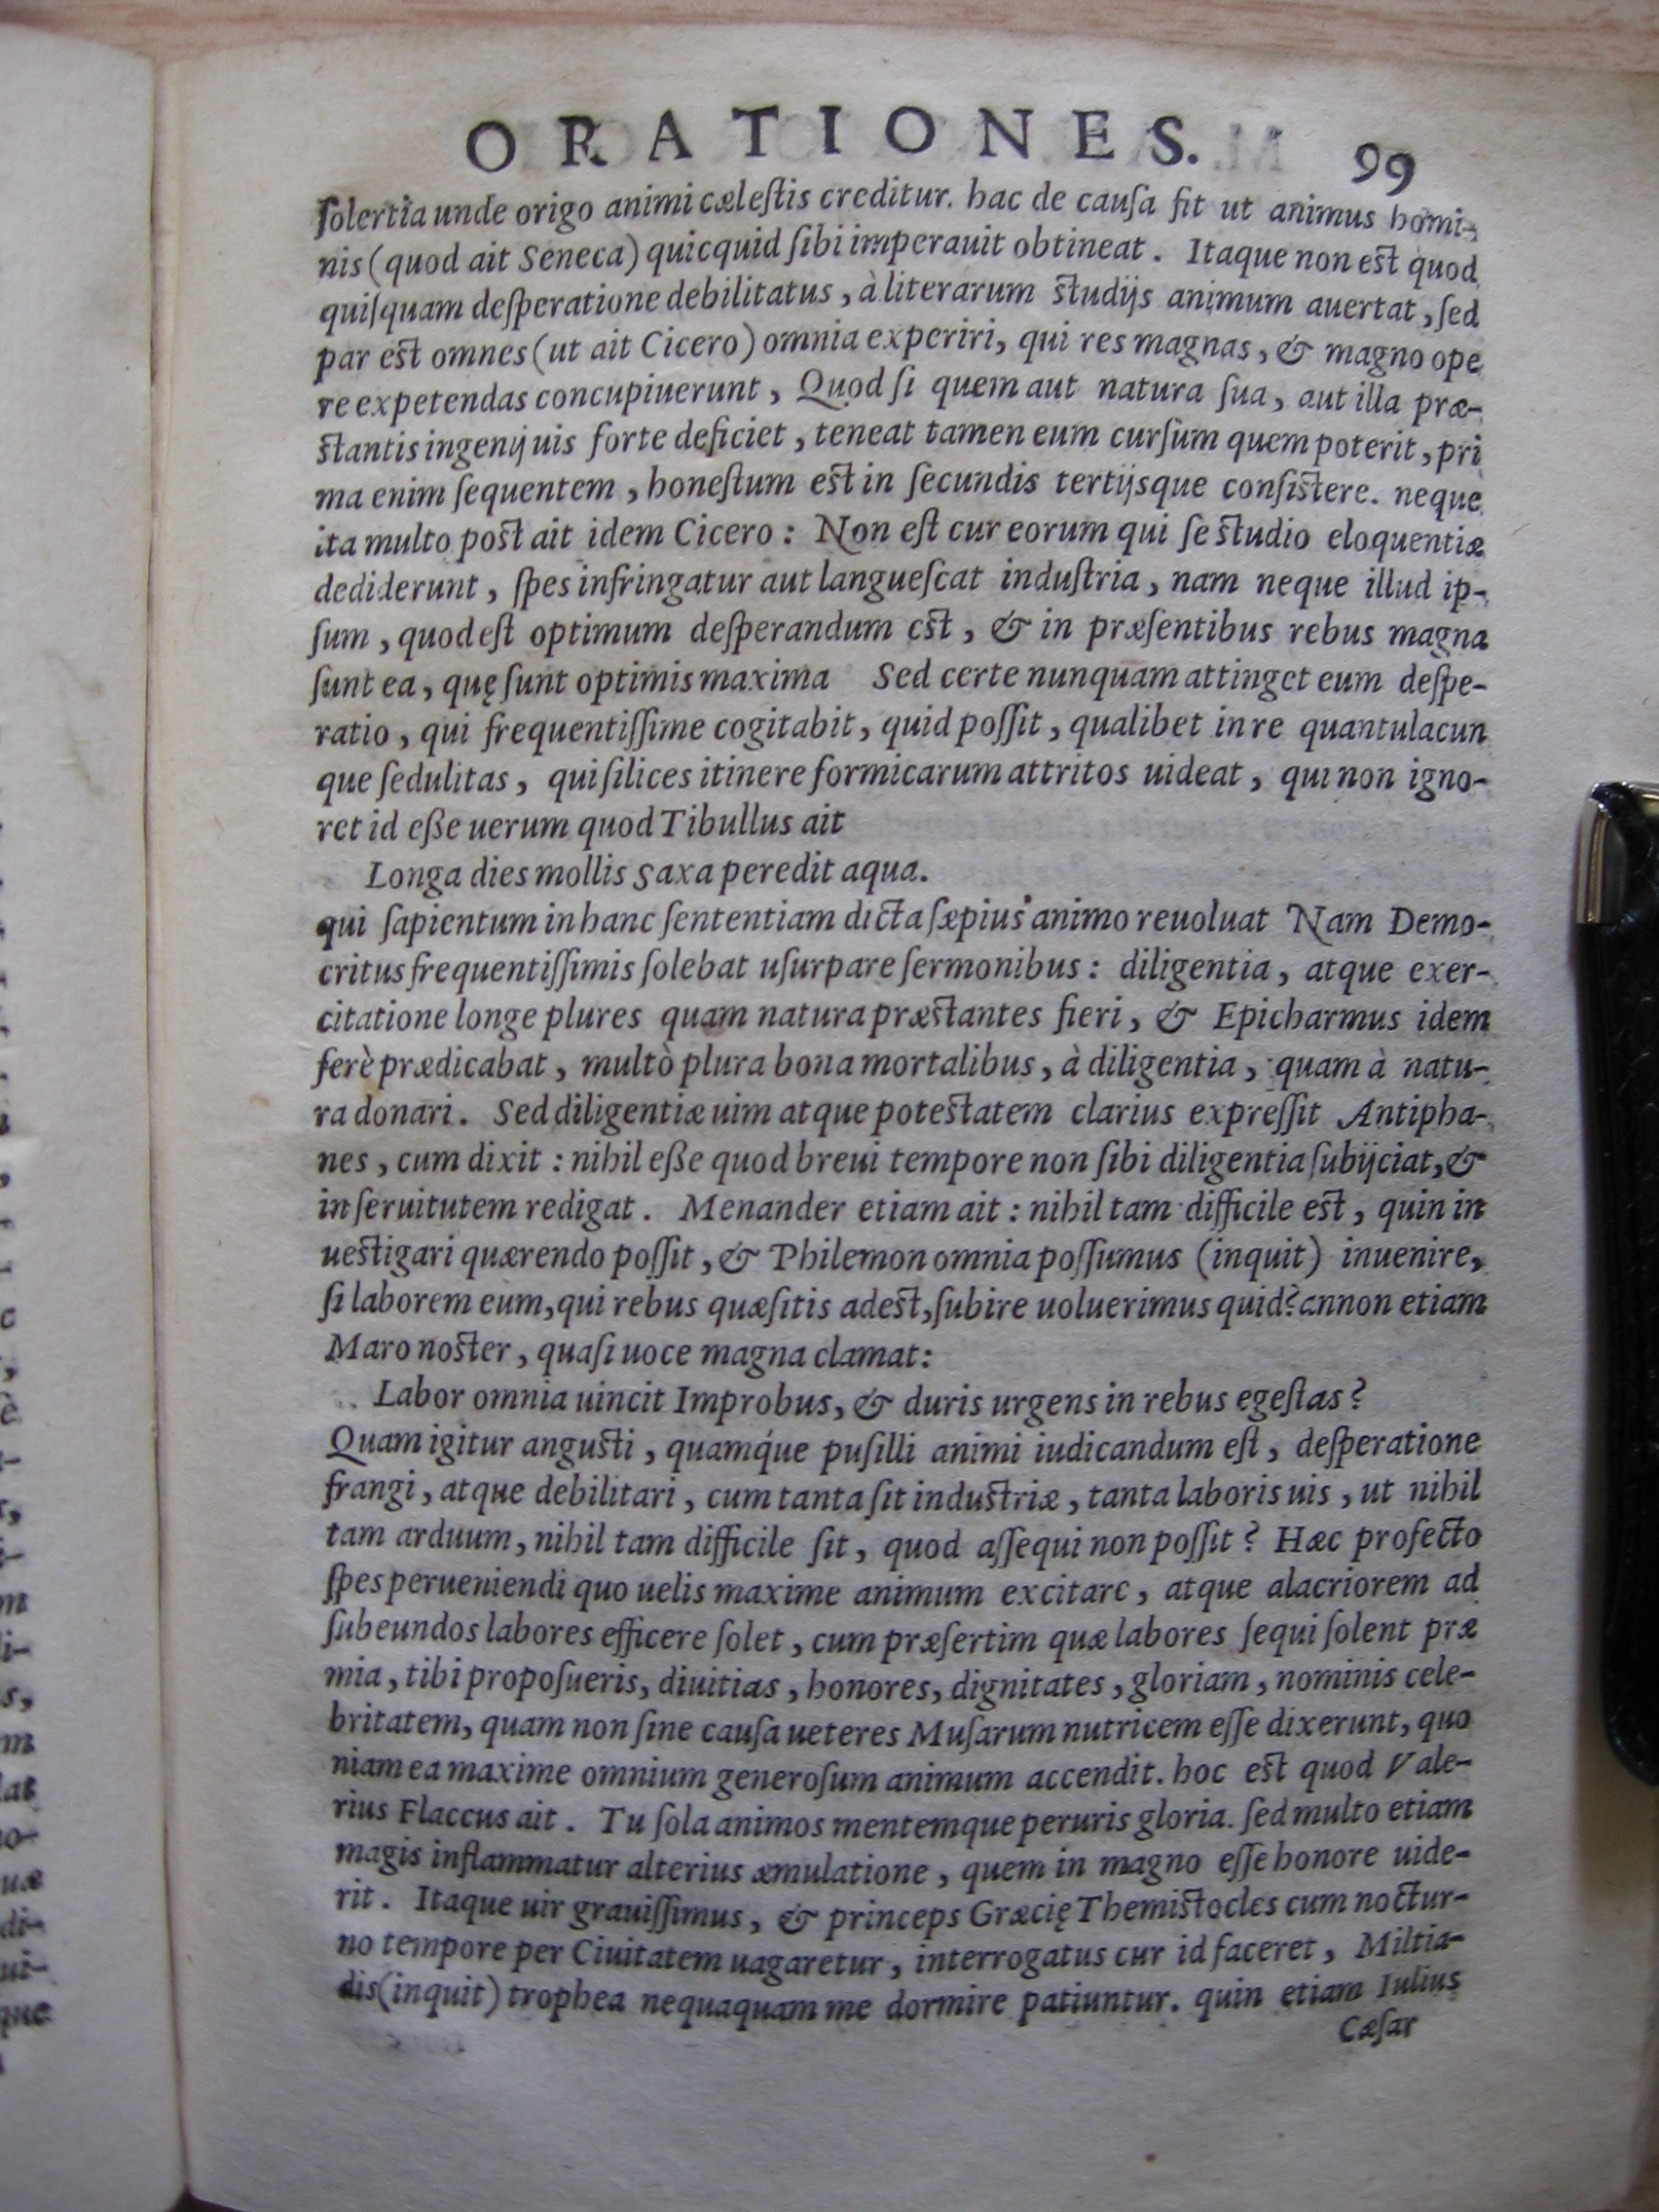 ORATIONES. 99
ſolertia unde origo animi cæleſtis creditur. hac de cauſa fit ut animus homi-
nis (quod ait Seneca) quicquid ſibi imperauit obtineat. Itaque non eſt quod
quiſquam deſperatione debilitatus, à literarum ſtudijs animum auertat, ſed
par eſt omnes (ut ait Cicero) omnia experiri, qui res magnas, & magno ope
re expetendas concupiuerunt, Quod ſi quem aut natura ſua, aut illa præ-
ſtantis ingenij uis forte deficiet, teneat tamen eum curſum quem poterit, pri
ma enim ſequentem, honeſtum eſt in ſecundis tertijsque conſiſtere. neque
ita multo poſt ait idem Cicero: Non eſt cur eorum qui ſe ſtudio eloquentiæ
dediderunt, ſpes infringatur aut langueſcat induſtria, nam neque illud ip-
ſum, quod eſt optimum deſperandum eſt, & in præſentibus rebus magna
ſunt ea, quę ſunt optimis maxima Sed certe nunquam attinget eum deſpe-
ratio, qui frequentiſſime cogitabit, quid poſſit, qualibet in re quantulacun
que ſedulitas, qui ſilices itinere formicarum attritos uideat, qui non igno-
ret id eße uerum quod Tibullus ait
Longa dies mollis Saxa peredit aqua.
qui ſapientum in hanc ſententiam dicta ſæpius animo reuoluat Nam Demo-
critus frequentiſſimis ſolebat uſurpare ſermonibus: diligentia, atque exer-
citatione longe plures quam natura præſtantes fieri, & Epicharmus idem
ferè prædicabat, multò plura bona mortalibus, à diligentia, quam à natu-
ra donari. Sed diligentiæ uim atque poteſtatem clarius expreſſit Antipha-
nes, cum dixit: nihil eße quod breui tempore non ſibi diligentia ſubijciat, &
in ſeruitutem redigat. Menander etiam ait: nihil tam difficile eſt, quin in
ueſtigari quærendo poſſit, & Philemon omnia poſſumus (inquit) inuenire,
ſi laborem eum, qui rebus quæſitis adeſt, ſubire uoluerimus quid? annon etiam
Maro noſter, quaſi uoce magna clamat:
Labor omnia uincit Improbus, & duris urgens in rebus egeſtas?
Quam igitur anguſti, quamq́ue puſilli animi iudicandum eſt, deſperatione
frangi, atque debilitari, cum tanta ſit induſtriæ, tanta laboris uis, ut nihil
tam arduum, nihil tam difficile ſit, quod aſſequi non poſſit? Hæc profecto
ſpes perueniendi quo uelis maxime animum excitare, atque alacriorem ad
ſubeundos labores efficere ſolet, cum præſertim quæ labores ſequi ſolent præ
mia, tibi propoſueris, diuitias, honores, dignitates, gloriam, nominis cele-
britatem, quam non ſine cauſa ueteres Muſarum nutricem eſſe dixerunt, quo
niam ea maxime omnium generoſum animum accendit. hoc eſt quod Vale-
rius Flaccus ait. Tu ſola animos mentemque peruris gloria. ſed multo etiam
magis inflammatur alterius æmulatione, quem in magno eſſe honore uide-
rit. Itaque uir grauiſſimus, & princeps Græcię Themiſtocles cum noctur-
no tempore per Ciuitatem uagaretur, interrogatus cur id faceret, Miltia-
dis (inquit) trophea nequaquam me dormire patiuntur. quin etiam Iulius
Cæſar